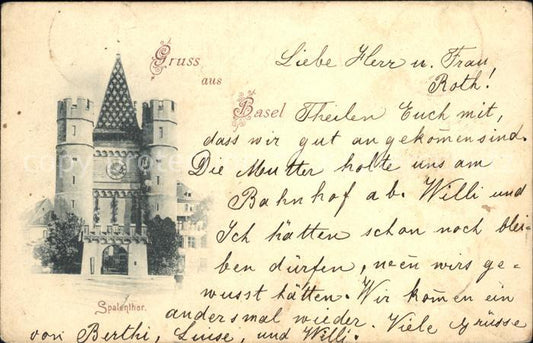 Gruss
aus
Basel
Liebe Herr u. Frau
Roth!
Theilen Euch mit,
dass wir gut angekomen sind.
Die Mutter holte uns am
Bahnhof ab. Willi und
Ich hätten schon noch blei-
ben dürfen, wenn wirs ge-
wusst hätten. Wir komen ein
andersmal wieder. Viele Grüsse
von Berthi, Luise, und Willi.
Spalenthor.